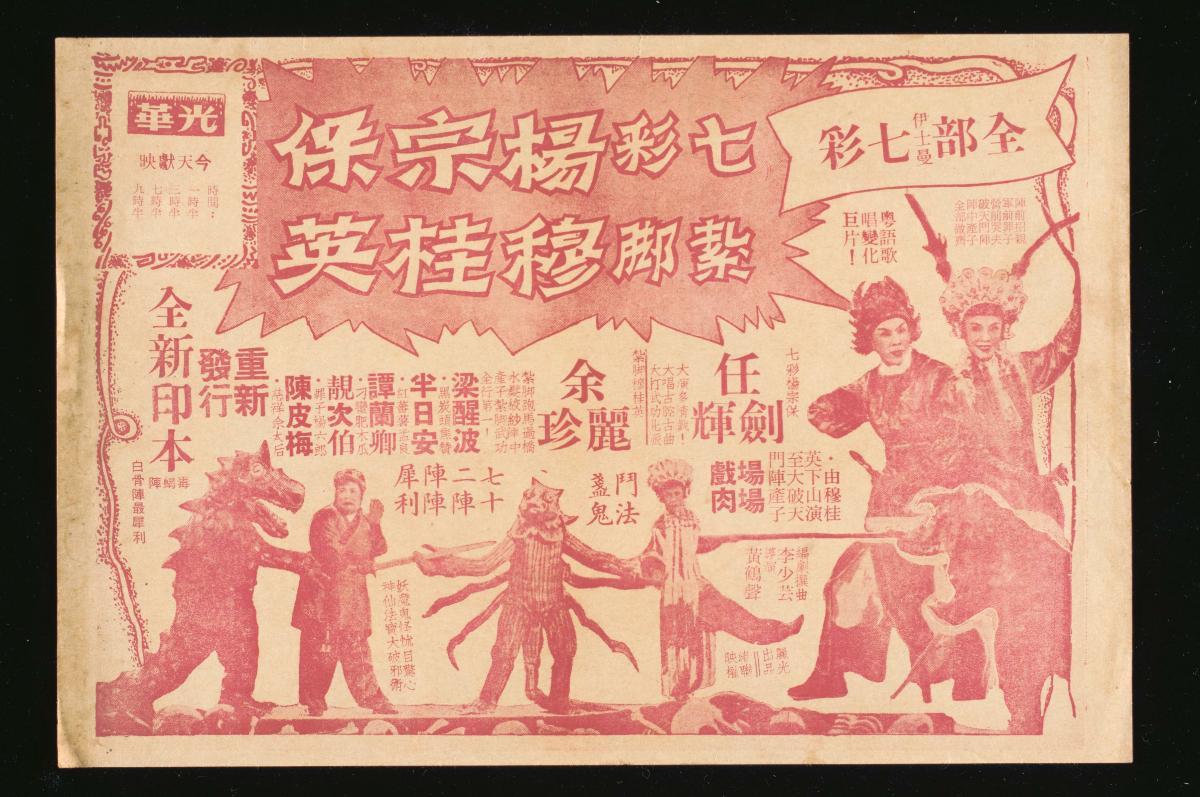 全部七彩
伊士曼
七彩楊宗保
紮腳穆桂英
光華
今天獻映
時間：
一時半
三時半
七時半
九時半
陣前招親
軍前罪子
營前哭夫
破天門陣
陣中產子
全部激齊
粵語歌
唱變化
巨片！
七彩楊宗保
任劍輝
大演多情戲！
大唱古腔古曲
大打武功北派
紮腳穆桂英
余麗珍
紮腳跑馬過橋
水髮破紗陣中
產子紮腳武功
全行第一！
梁醒波
半日安
譚蘭卿
靚次伯
陳皮梅
重新
發行
全新印本
毒蝎陣
白骨陣最犀利
·由穆桂
英下山演
至大破天
門陣產子
場場
戲肉
鬥法
盞鬼
七十
二陣
陣陣
犀利
編劇撰曲
李少芸
導演
黃鶴聲
麗光
出品
映權
妖魔鬼怪怵目驚心
神仙法寶大破邪術